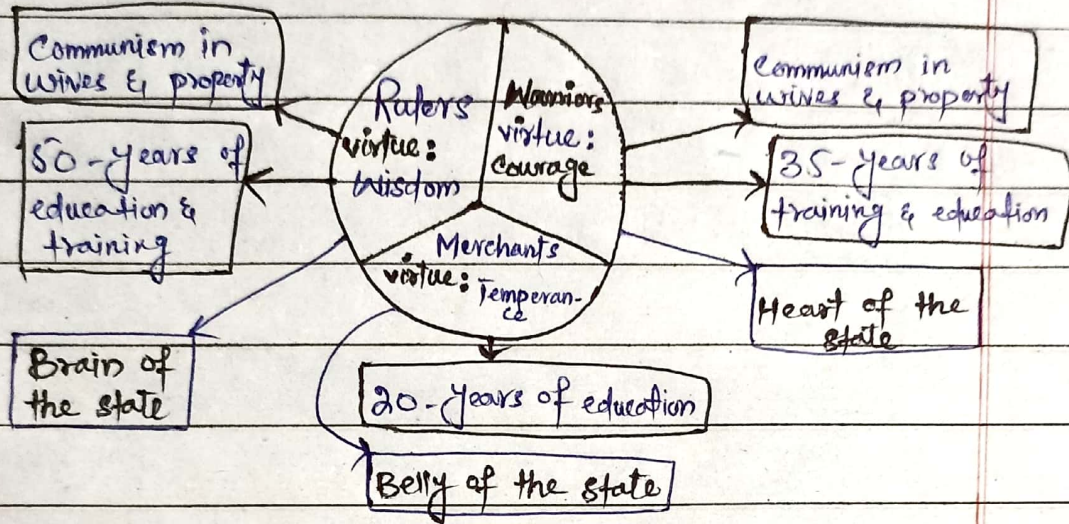 Communism in
wives & property
50-years of
education &
training
Brain of
the state
Rulers
virtue:
Wisdom
Warriors
virtue:
Courage
Merchants
virtue: Temperan-
ce
Communism in
wives & property
35-years of
training & education
Heart of the
state
20-years of education
Belly of the state